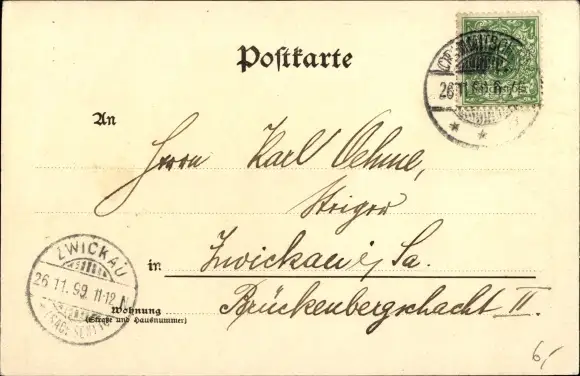 Postkarte
26 11 99
An
Herrn Karl Oehme,
Steiger
ZWICKAU
26 11. 99 11-12 N
in Zwickau i/ Sa.
Wohnung Brückenbergschacht II.
(Straße und Hausnummer)
6,-